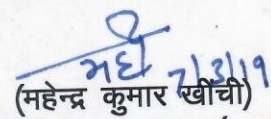 7/3/19
(महेन्द्र कुमार खींची)